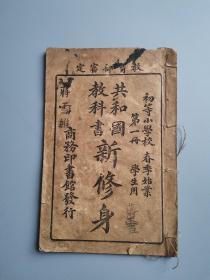 教育部審定
初等小學校
春季始業
學生用
第一冊
共和國
教科書
新修身
商務印書館發行